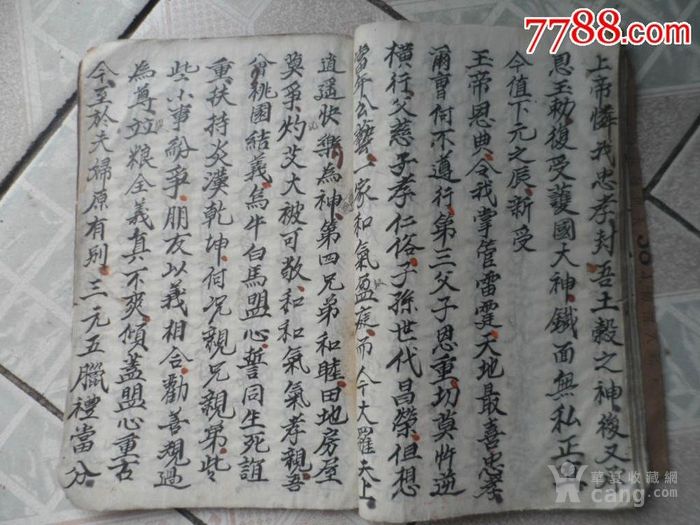 7788.com
上帝憐我忠孝封吾土榖之神後又
恩玉勅復受護國大神鐵面無私正
今值下元之辰新受
玉帝恩典令我掌管雷霆天地最喜忠孝
爾曹何不遵行第三父子恩重切莫忤逆
橫行父慈子孝仁俗子孫世代昌榮但想
當年公藝一家和氣盈庭而今大羅天上
逍遥快樂為神第四兄弟和睦田地房屋
莫爭灼艾大被可敬和和氣氣孝親吾
曾桃園結義烏牛白馬盟心誓同生死誼
重扶持炎漢乾坤何况親兄親弟些
些小事紛爭朋友以義相合勸善規過
為尊並粮全義真不爽傾蓋盟心重古
今至於夫婦原有别三元五臘禮當分
華夏收藏网
cang.com